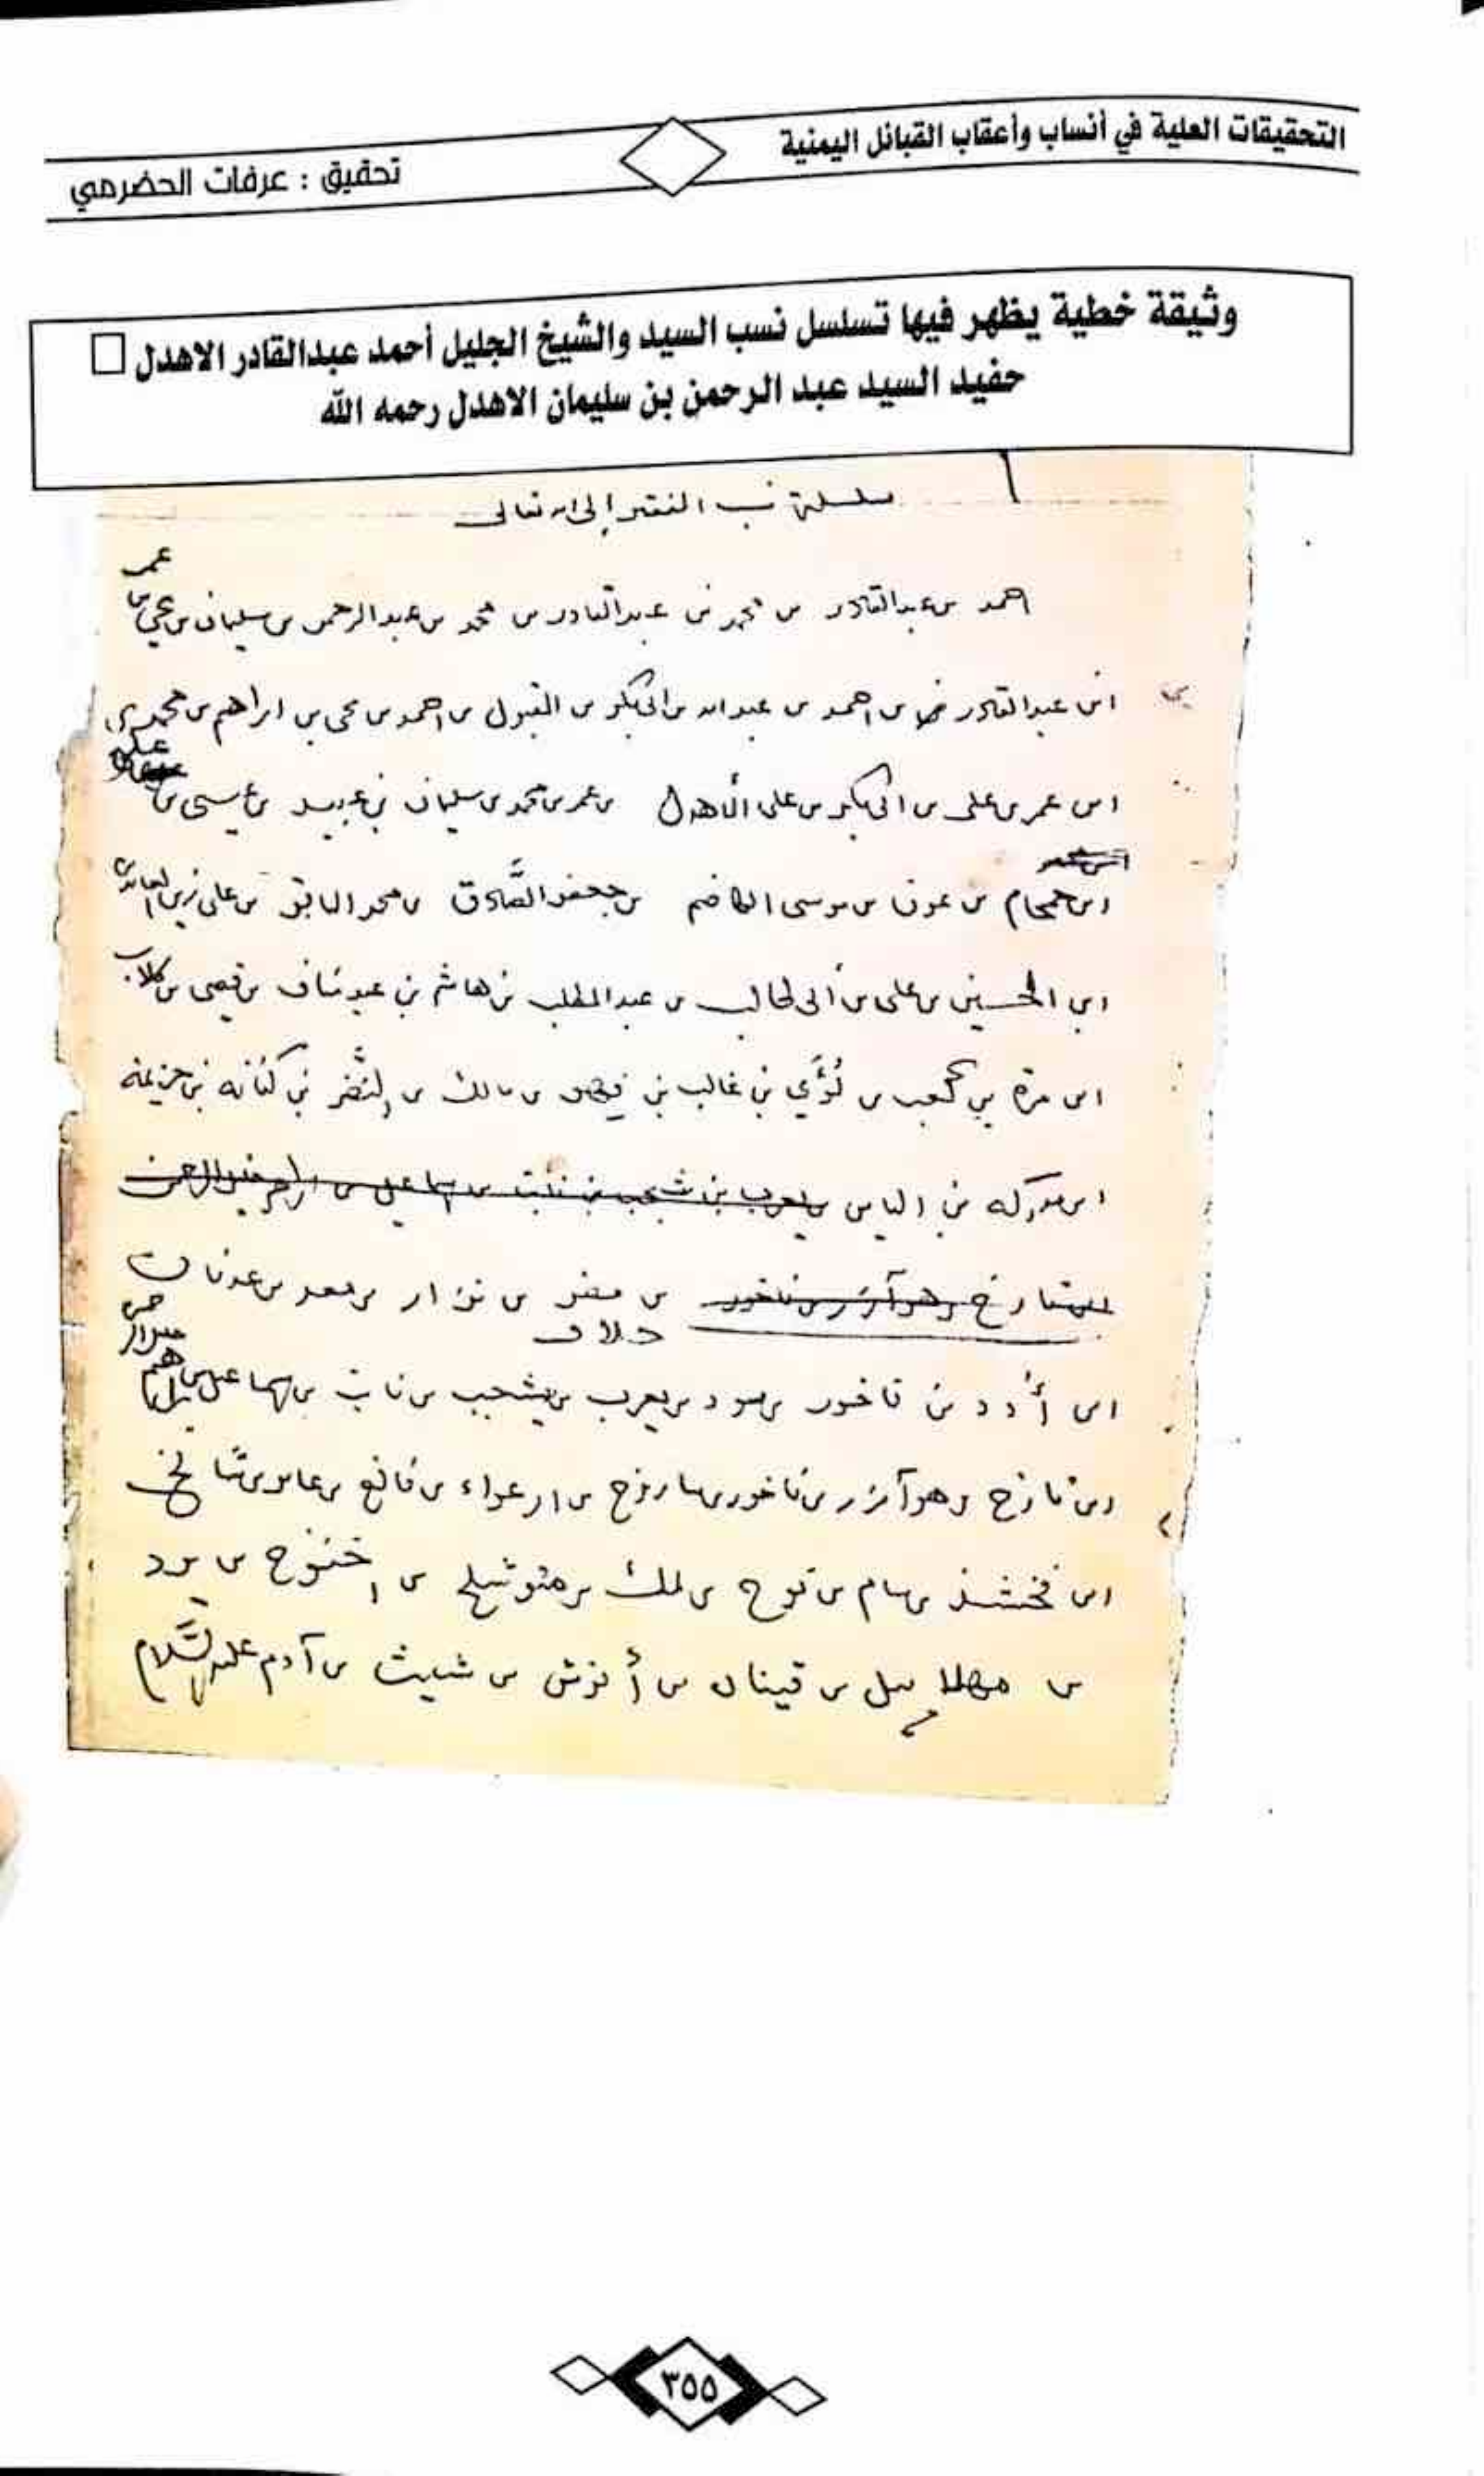 التحقيقات العلية في أنساب وأعقاب القبائل اليمنية
تحقيق : عرفات الحضرمي
وثيقة خطية يظهر فيها تسلسل نسب السيد والشيخ الجليل أحمد عبدالقادر الاهدل
حفيد السيد عبد الرحمن بن سليمان الاهدل رحمه الله
سلسلة نسب الفقير إلى الله تعالى
عمر
احمد بن عبدالقادر بن محمد بن عبدالقادر بن محمد بن عبدالرحمن بن سليمان بن يحيى بن
ابن عبدالقادر بن احمد بن عبدالله بن ابي بكر بن المقبول بن احمد بن يحيى بن ابراهيم بن محمد بن
ابن عمر بن علي بن ابي بكر بن علي الأهدل بن عمر بن محمد بن سليمان بن عبيد بن عيسى بن
علوي
ابن حمحام بن عون بن موسى الكاظم بن جعفر الصَّادق بن محمد الباقر بن علي زين العابدين
ابن الحسين بن علي بن أبي طالب بن عبد المطلب بن هاشم بن عبد مناف بن قصي بن كلاب
ابن مرة بن كعب بن لُؤَي بن غالب بن فهر بن مالك بن النَّضْر بن كنانه بن خزيمة
ابن مدركه بن الياس بن يعرب بن يشجب بن نابت بن اسماعيل بن ابراهيم خليل الرحمن
بن تارخ وهو آزر بن ناخور بن مضر بن نزار بن معد بن عدنان
ابن أُدد بن ناخور بن سود بن يعرب بن يشجب بن نابت بن اسماعيل بن ابراهيم
ابن تارخ وهو آزر بن ناخور بن ساروخ بن ارعواء بن فالخ بن عابر بن شالخ
ابن فخشذ بن سام بن نوح بن لمك بن متوشلح بن اخنوخ بن يرد
بن مهلا ييل بن قينان بن أنوش بن شيث بن آدم عليه السَّلام
٣٥٥